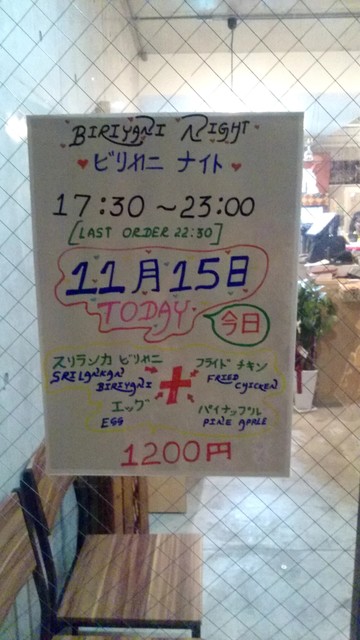 BIRIYANI NIGHT
ビリヤニ ナイト
17:30 ~23:00
[LAST ORDER 22:30]
11月15日
TODAY
今日
スリランカ ビリヤニ
SRILANKAN
BIRIYANI
フライド チキン
FRIED
CHICKEN
エッグ
EGG
パイナップル
PINE APPLE
+
1200円